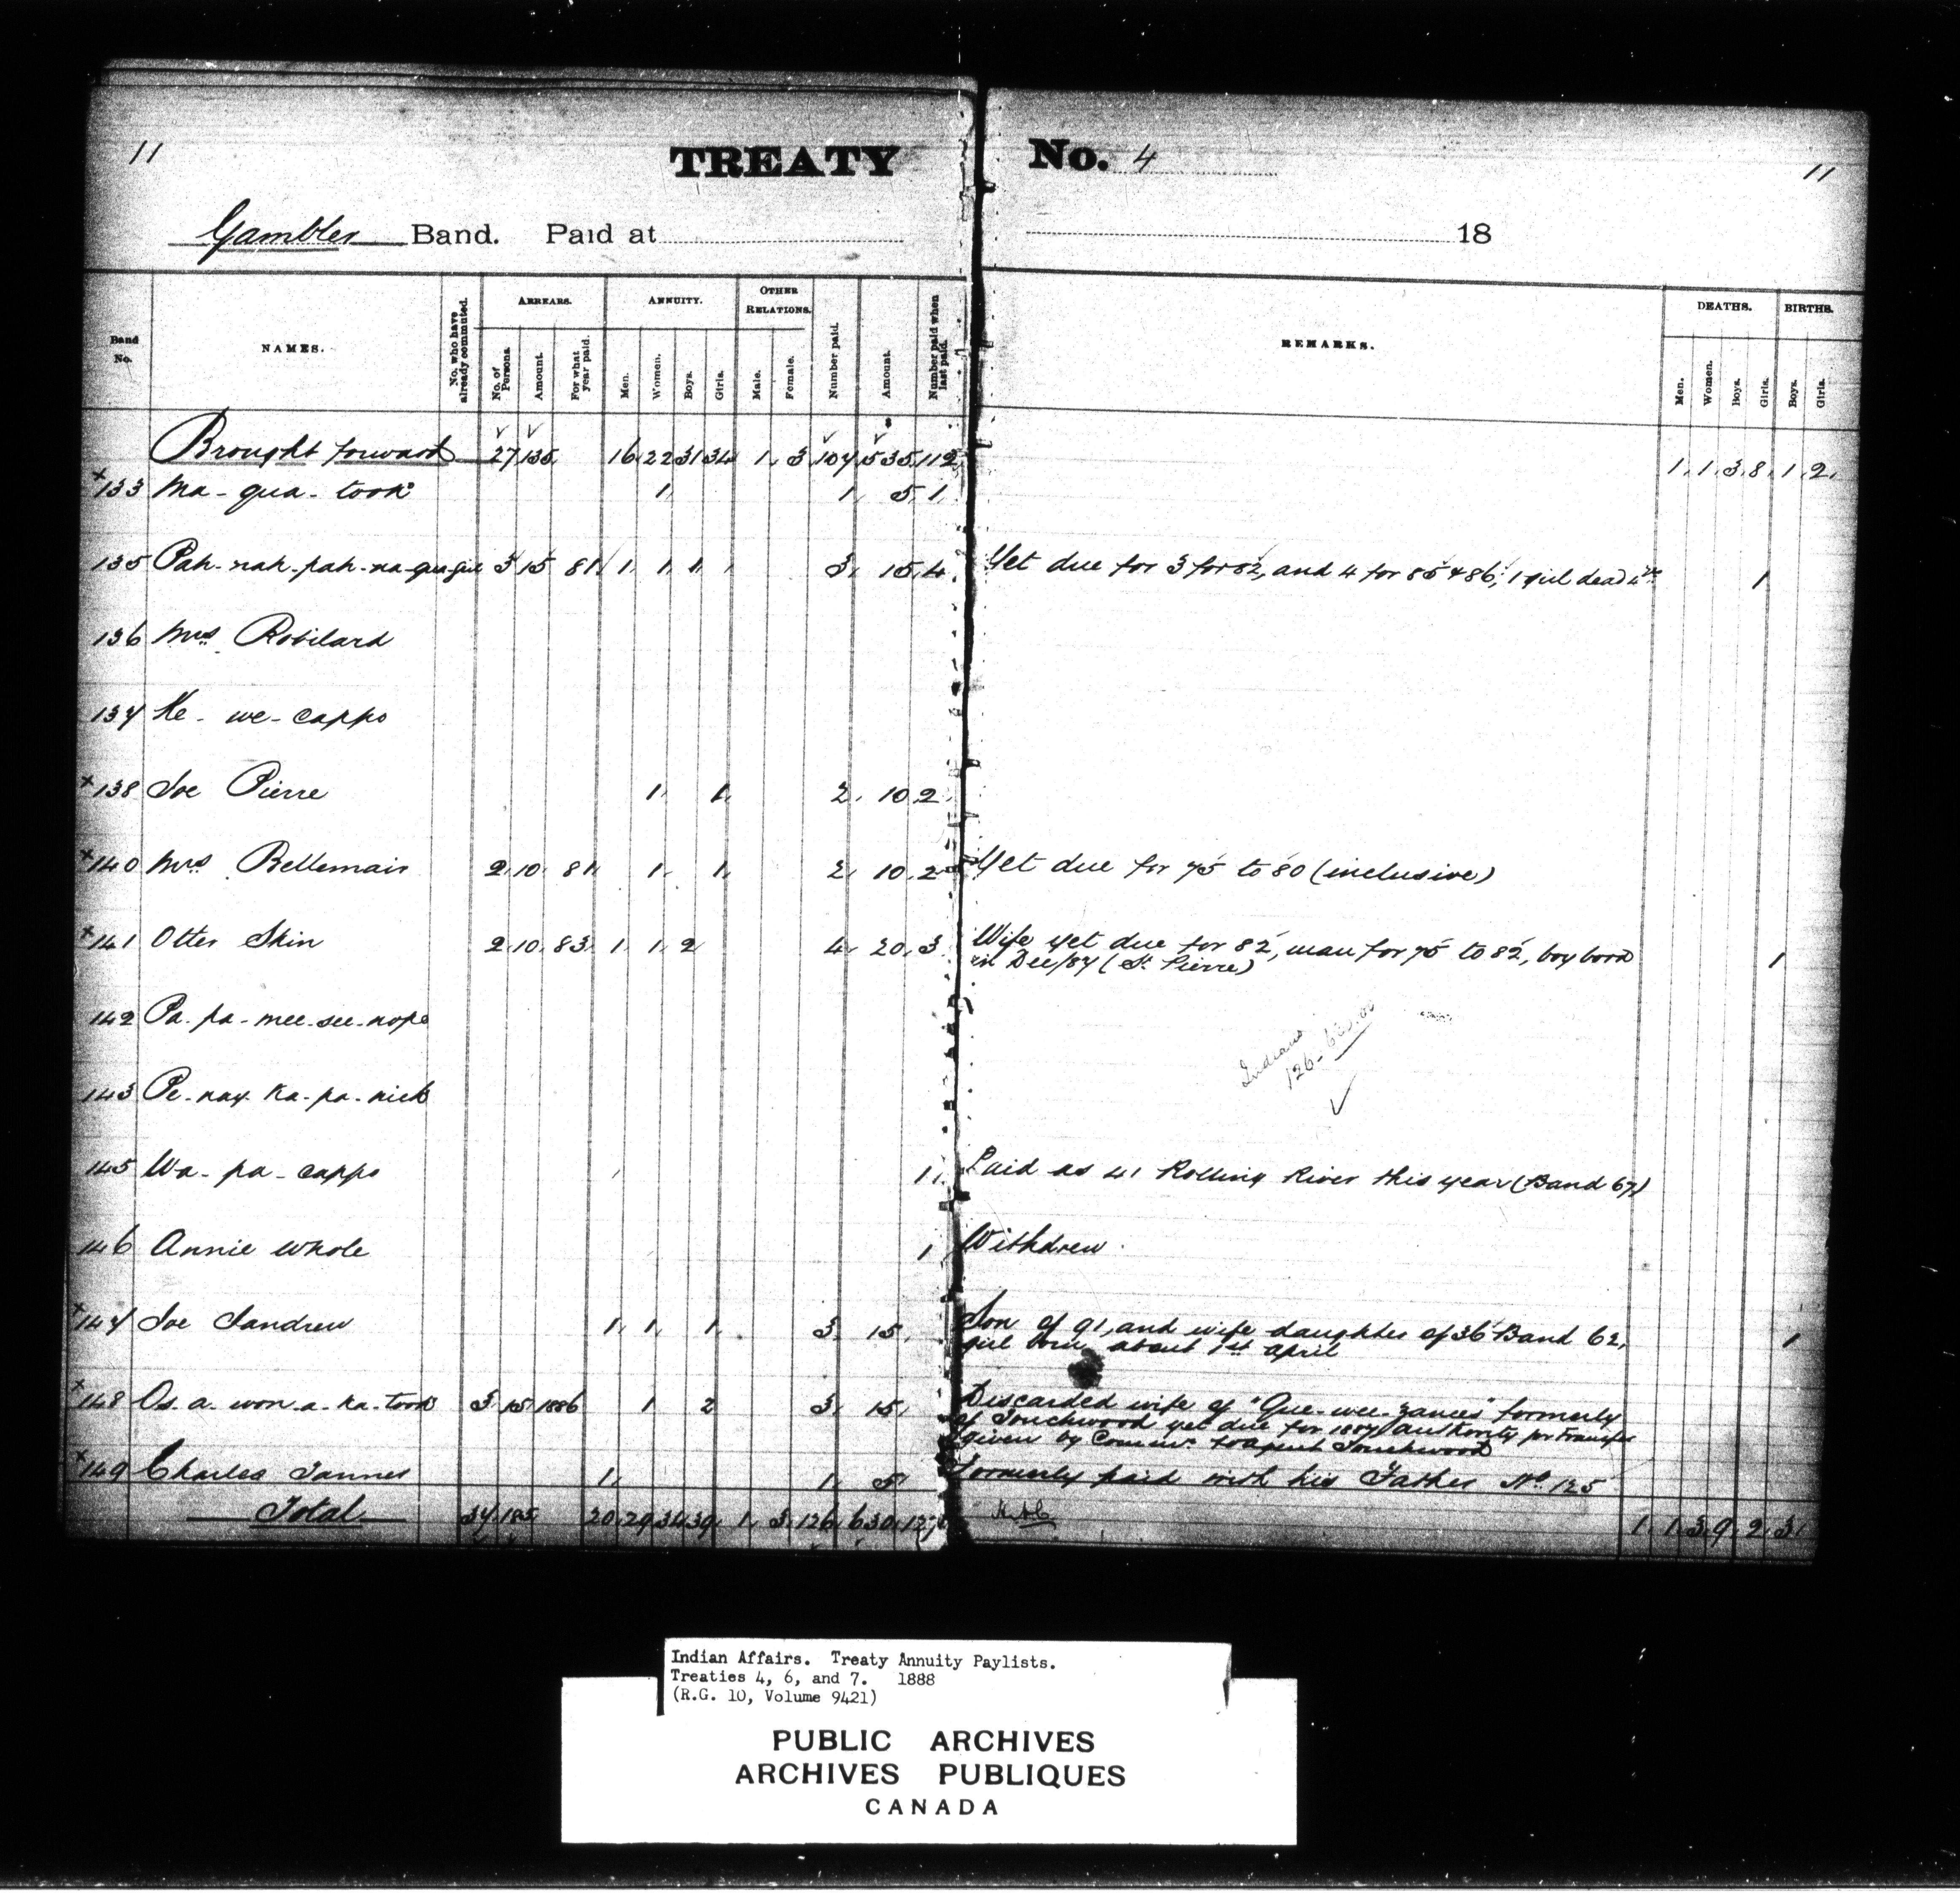 11
TREATY No. 4
11
Gambler Band. Paid at 18
Band No.
NAMES.
No. who have already commuted.
ARREARS.
No. of Persons.
Amount.
For what year paid.
ANNUITY.
Men.
Women.
Boys.
Girls.
OTHER RELATIONS.
Male.
Female.
Number paid.
Amount.
Number paid when last paid.
REMARKS.
DEATHS.
Men.
Women.
Boys.
Girls.
BIRTHS.
Boys.
Girls.
Brought forward 27 135 16 22 31 34 1 3 107 535 112 1 1 3 8 1 2
x 133 Ma-qua-took 1 1 5 1
135 Pah-nah-pah-na-qua-gua 3 15 81 1 1 1 3 15 4 Yet due for 3 for 82, and 4 for 85 & 86, 1 girl dead 1
136 Mrs Robilard
137 Ke-we-cappo
x 138 Joe Pierre 1 1 2 10 2
x 140 Mrs Bellemair 2 10 81 1 1 2 10 2 Yet due for 75 to 80 (inclusive)
x 141 Otter Skin 2 10 83 1 1 2 4 20 3 Wife yet due for 82, man for 75 to 82, boy born 1
in Dec/87 (St. Pierre)
142 Pa-pa-mee-see-nope
Indians
126 - 630.00
143 Pe-nay-ka-pa-nick
145 Wa-pa-cappo 1 Paid as 41 Rolling River this year (Band 67)
146 Annie Whole 1 Withdrew.
x 147 Joe Tandrew 1 1 1 3 15 Son of 91, and wife daughter of 36 Band 62, 1
girl born about 1st April
x 148 Os-a-won-a-ka-took 3 15 1886 1 2 3 15 Discarded wife of "Que-wee-zance" formerly
of Touchwood yet due for 1887 authority for transfer
given by Commr. to agent Touchwood
x 149 Charles Tanner 1 1 5 Formerly paid with his Father No. 125
Total 37 185 20 29 34 39 1 3 126 630 127 1 1 3 9 2 3
Indian Affairs. Treaty Annuity Paylists.
Treaties 4, 6, and 7. 1888
(R.G. 10, Volume 9421)
PUBLIC ARCHIVES
ARCHIVES PUBLIQUES
CANADA